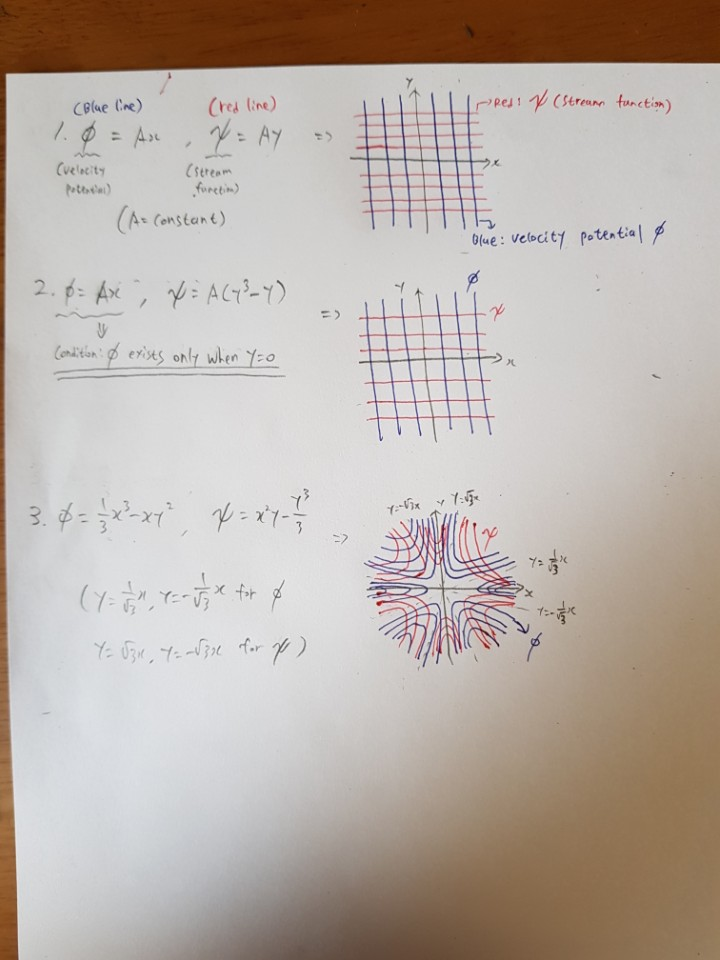 (Blue line) (red line)
1. ϕ = Ax , ψ = Ay ⇒
(velocity potential) (stream function)
(A = constant)
y
x
Red: ψ (Stream function)
Blue: velocity potential ϕ
2. ϕ = Ax , ψ = A(y³-y) ⇒
⇓
Condition: ϕ exists only when y=0
y
ϕ
ψ
x
3. ϕ = 1/3 x³ - xy² , ψ = x²y - y³/3 ⇒
(y = 1/√3 x, y = -1/√3 x for ϕ
y = √3x, y = -√3x for ψ)
y=-√3x y y=√3x
ψ
y = 1/√3 x
x
y = -1/√3 x
ϕ